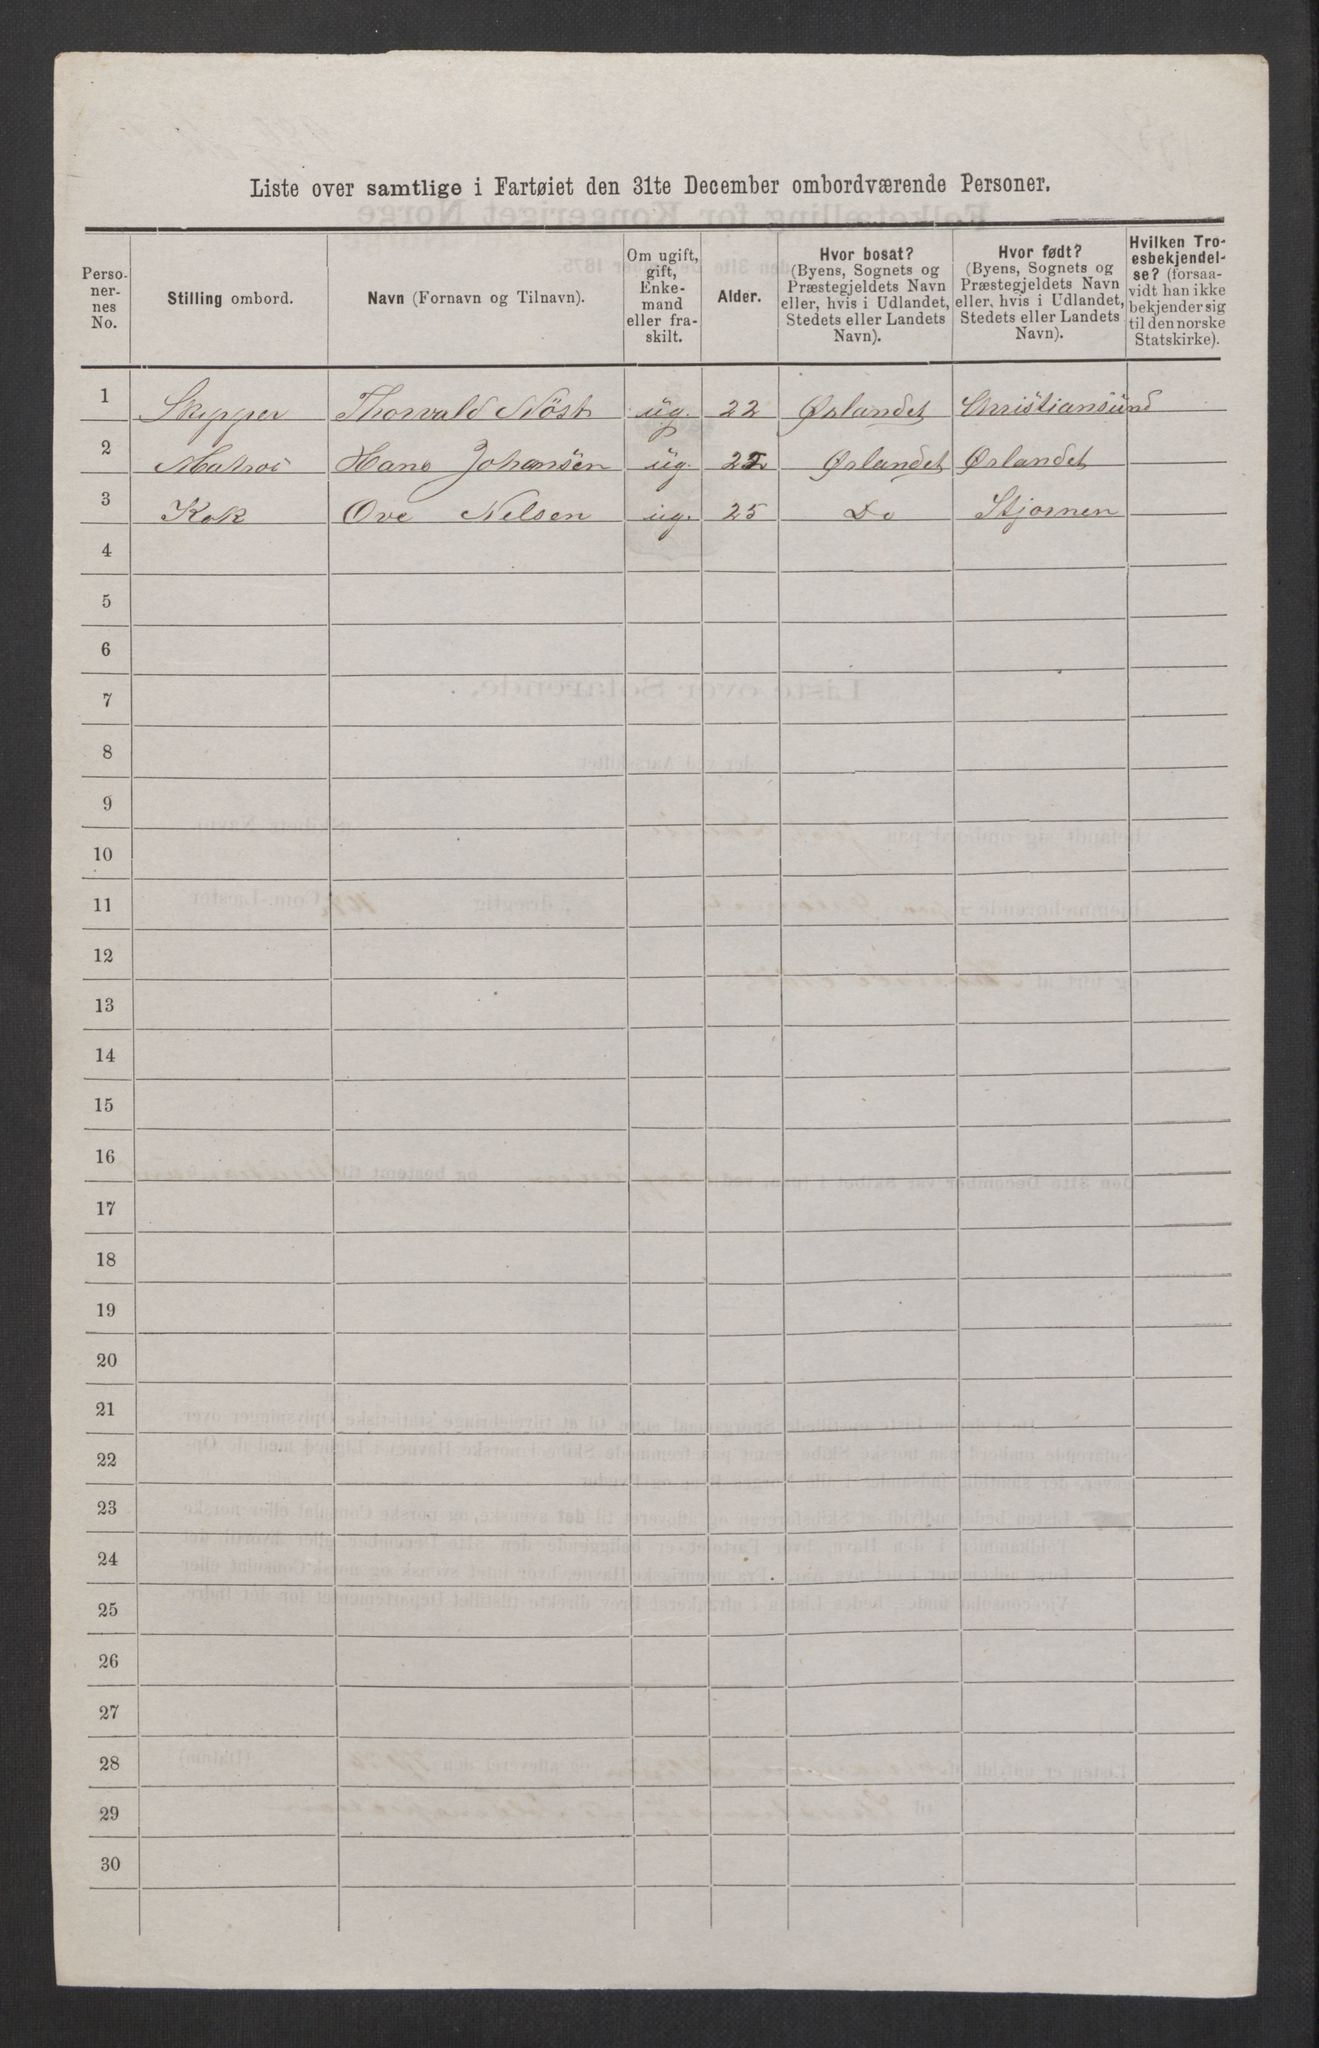 Liste over samtlige i Fartøiet den 31te December ombordværende Personer.
Perso-
ner-
nes
No.
Stilling ombord.
Navn (Fornavn og Tilnavn).
Om ugift,
gift,
Enke-
mand
eller fra-
skilt.
Alder.
Hvor bosat?
(Byens, Sognets og
Præstegjeldets Navn
eller, hvis i Udlandet,
Stedets eller Landets
Navn).
Hvor født?
(Byens, Sognets og
Præstegjeldets Navn
eller, hvis i Udlandet,
Stedets eller Landets
Navn).
Hvilken Tro-
esbekjendel-
se? (forsaa-
vidt han ikke
bekjender sig
til den norske
Statskirke).
1 Skipper Thorvald Nöst ug. 22 Ørlandet Christiansund
2 Matros Hans Johansen ug. 22 Ørlandet Ørlandet
3 Kok Ove Nelsen ug. 25 Do Stjornen
4
5
6
7
8
9
10
11
12
13
14
15
16
17
18
19
20
21
22
23
24
25
26
27
28
29
30